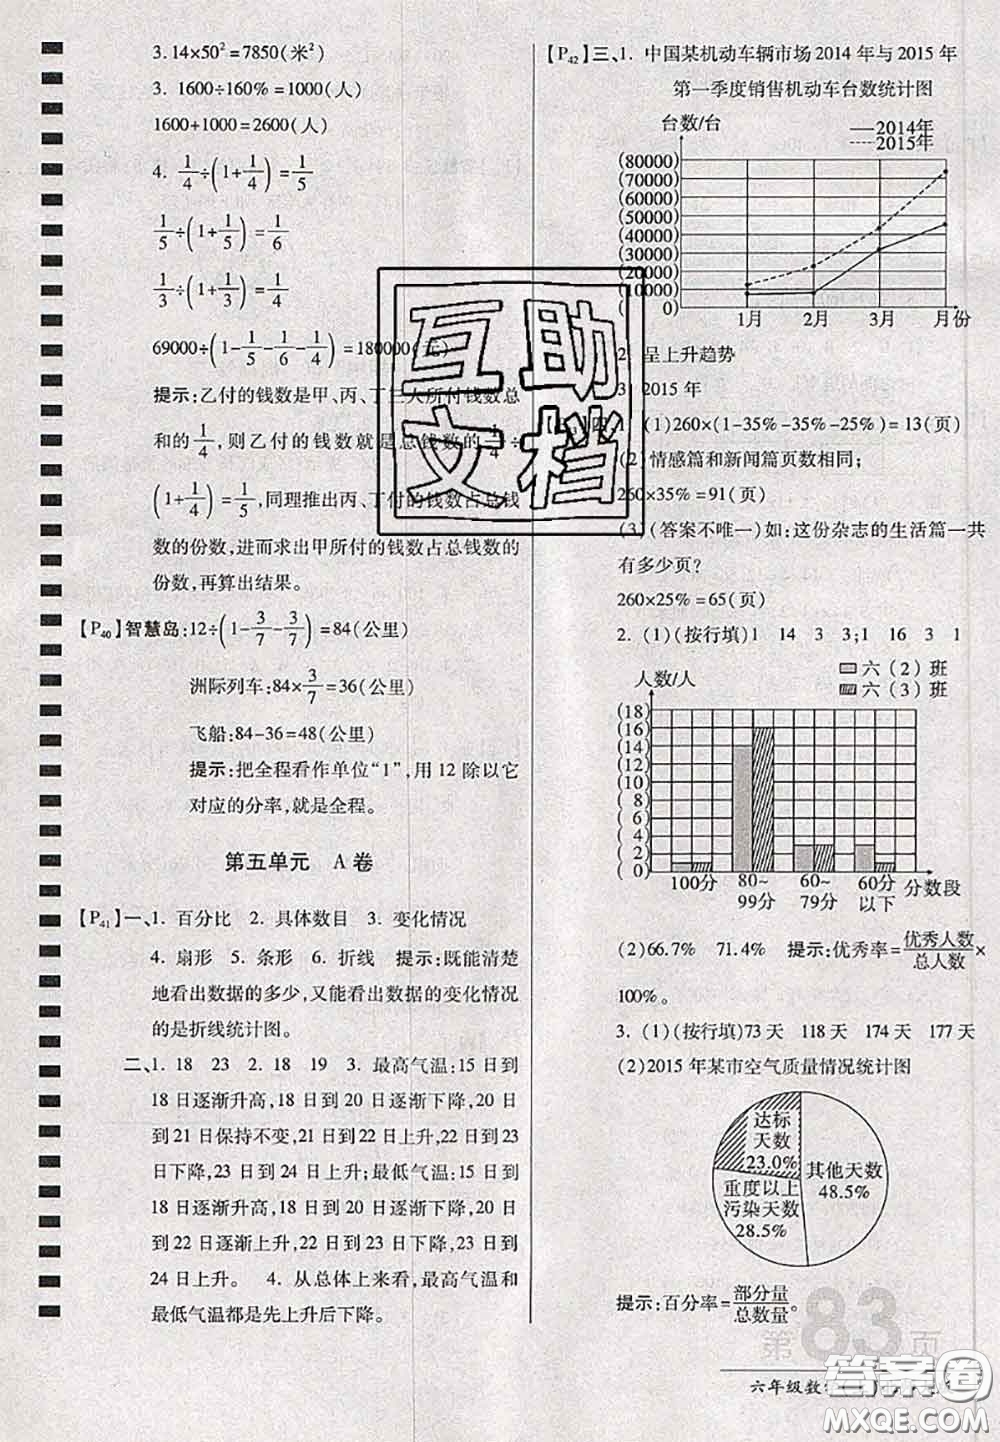 3.14×50²=7850(米²)
3. 1600÷160%=1000(人)
1600+1000=2600(人)
4. 1/4÷(1+1/4)=1/5
1/5÷(1+1/5)=1/6
1/3÷(1+1/3)=1/4
69000÷(1-1/5-1/6-1/4)=180000(元)
提示:乙付的钱数是甲、丙、丁三人所付钱数总
和的1/4,则乙付的钱数就是总钱数的1/4÷
(1+1/4)=1/5,同理推出丙、丁付的钱数占总钱
数的份数,进而求出甲所付的钱数占总钱数的
份数,再算出结果。
【P40】智慧岛:12÷(1-3/7-3/7)=84(公里)
洲际列车:84×3/7=36(公里)
飞船:84-36=48(公里)
提示:把全程看作单位“1”,用 12 除以它
对应的分率,就是全程。
第五单元 A卷
【P41】一、1. 百分比 2. 具体数目 3. 变化情况
4. 扇形 5. 条形 6. 折线 提示:既能清楚
地看出数据的多少,又能看出数据的变化情况
的是折线统计图。
二、1. 18 23 2. 18 19 3. 最高气温:15 日到
18 日逐渐升高,18 日到 20 日逐渐下降,20 日
到 21 日保持不变,21 日到 22 日上升,22 日到 23
日下降,23 日到 24 日上升;最低气温:15 日到
18 日逐渐升高,18 日到 20 日逐渐下降,20 日
到 22 日逐渐上升,22 日到 23 日下降,23 日到
24 日上升。 4. 从总体上来看,最高气温和
最低气温都是先上升后下降。
【P42】三、1. 中国某机动车辆市场 2014 年与 2015 年
第一季度销售机动车台数统计图
台数/台
2014年
2015年
(80000)
(70000)
(60000)
(50000)
(40000)
(30000)
(20000)
(10000)
(0)
1月 2月 3月 月份
2. 呈上升趋势
3. 2015 年
(1)260×(1-35%-35%-25%)=13(页)
(2)情感篇和新闻篇页数相同;
260×35%=91(页)
(3)(答案不唯一)如:这份杂志的生活篇一共
有多少页?
260×25%=65(页)
2. (1)(按行填)1 14 3 3;1 16 3 1
六(2)班
六(3)班
人数/人
(18)
(16)
(14)
(12)
(10)
(8)
(6)
(4)
(2)
(0)
100分 80~99分 60~79分 60分以下 分数段
(2)66.7% 71.4% 提示:优秀率=优秀人数/总人数×
100%。
3. (1)(按行填)73 天 118 天 174 天 177 天
(2)2015 年某市空气质量情况统计图
达标
天数
23.0%
其他天数
48.5%
重度以上
污染天数
28.5%
提示:百分率=部分量/总数量。
第83页
六年级数学
互助
文档
答案圈
MXQE.COM